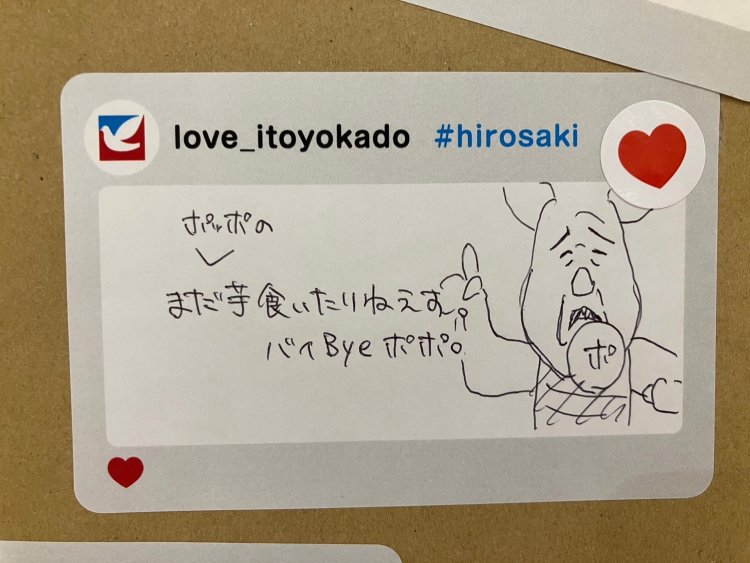 love_itoyokado #hirosaki
ポッポの
まだ芋食いたりねえす!?
バイByeポポ。
ポ